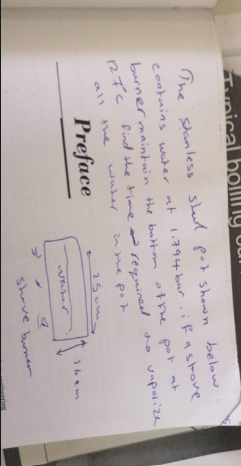 Typical boiling cu
The stanless steel pot shown below
contains water at 1.794bar. if a stove
burner maintain the bottom of the pot at
find the time required to vaporize
all the water in the pot
Preface
25cm
16cm
water
stove burner